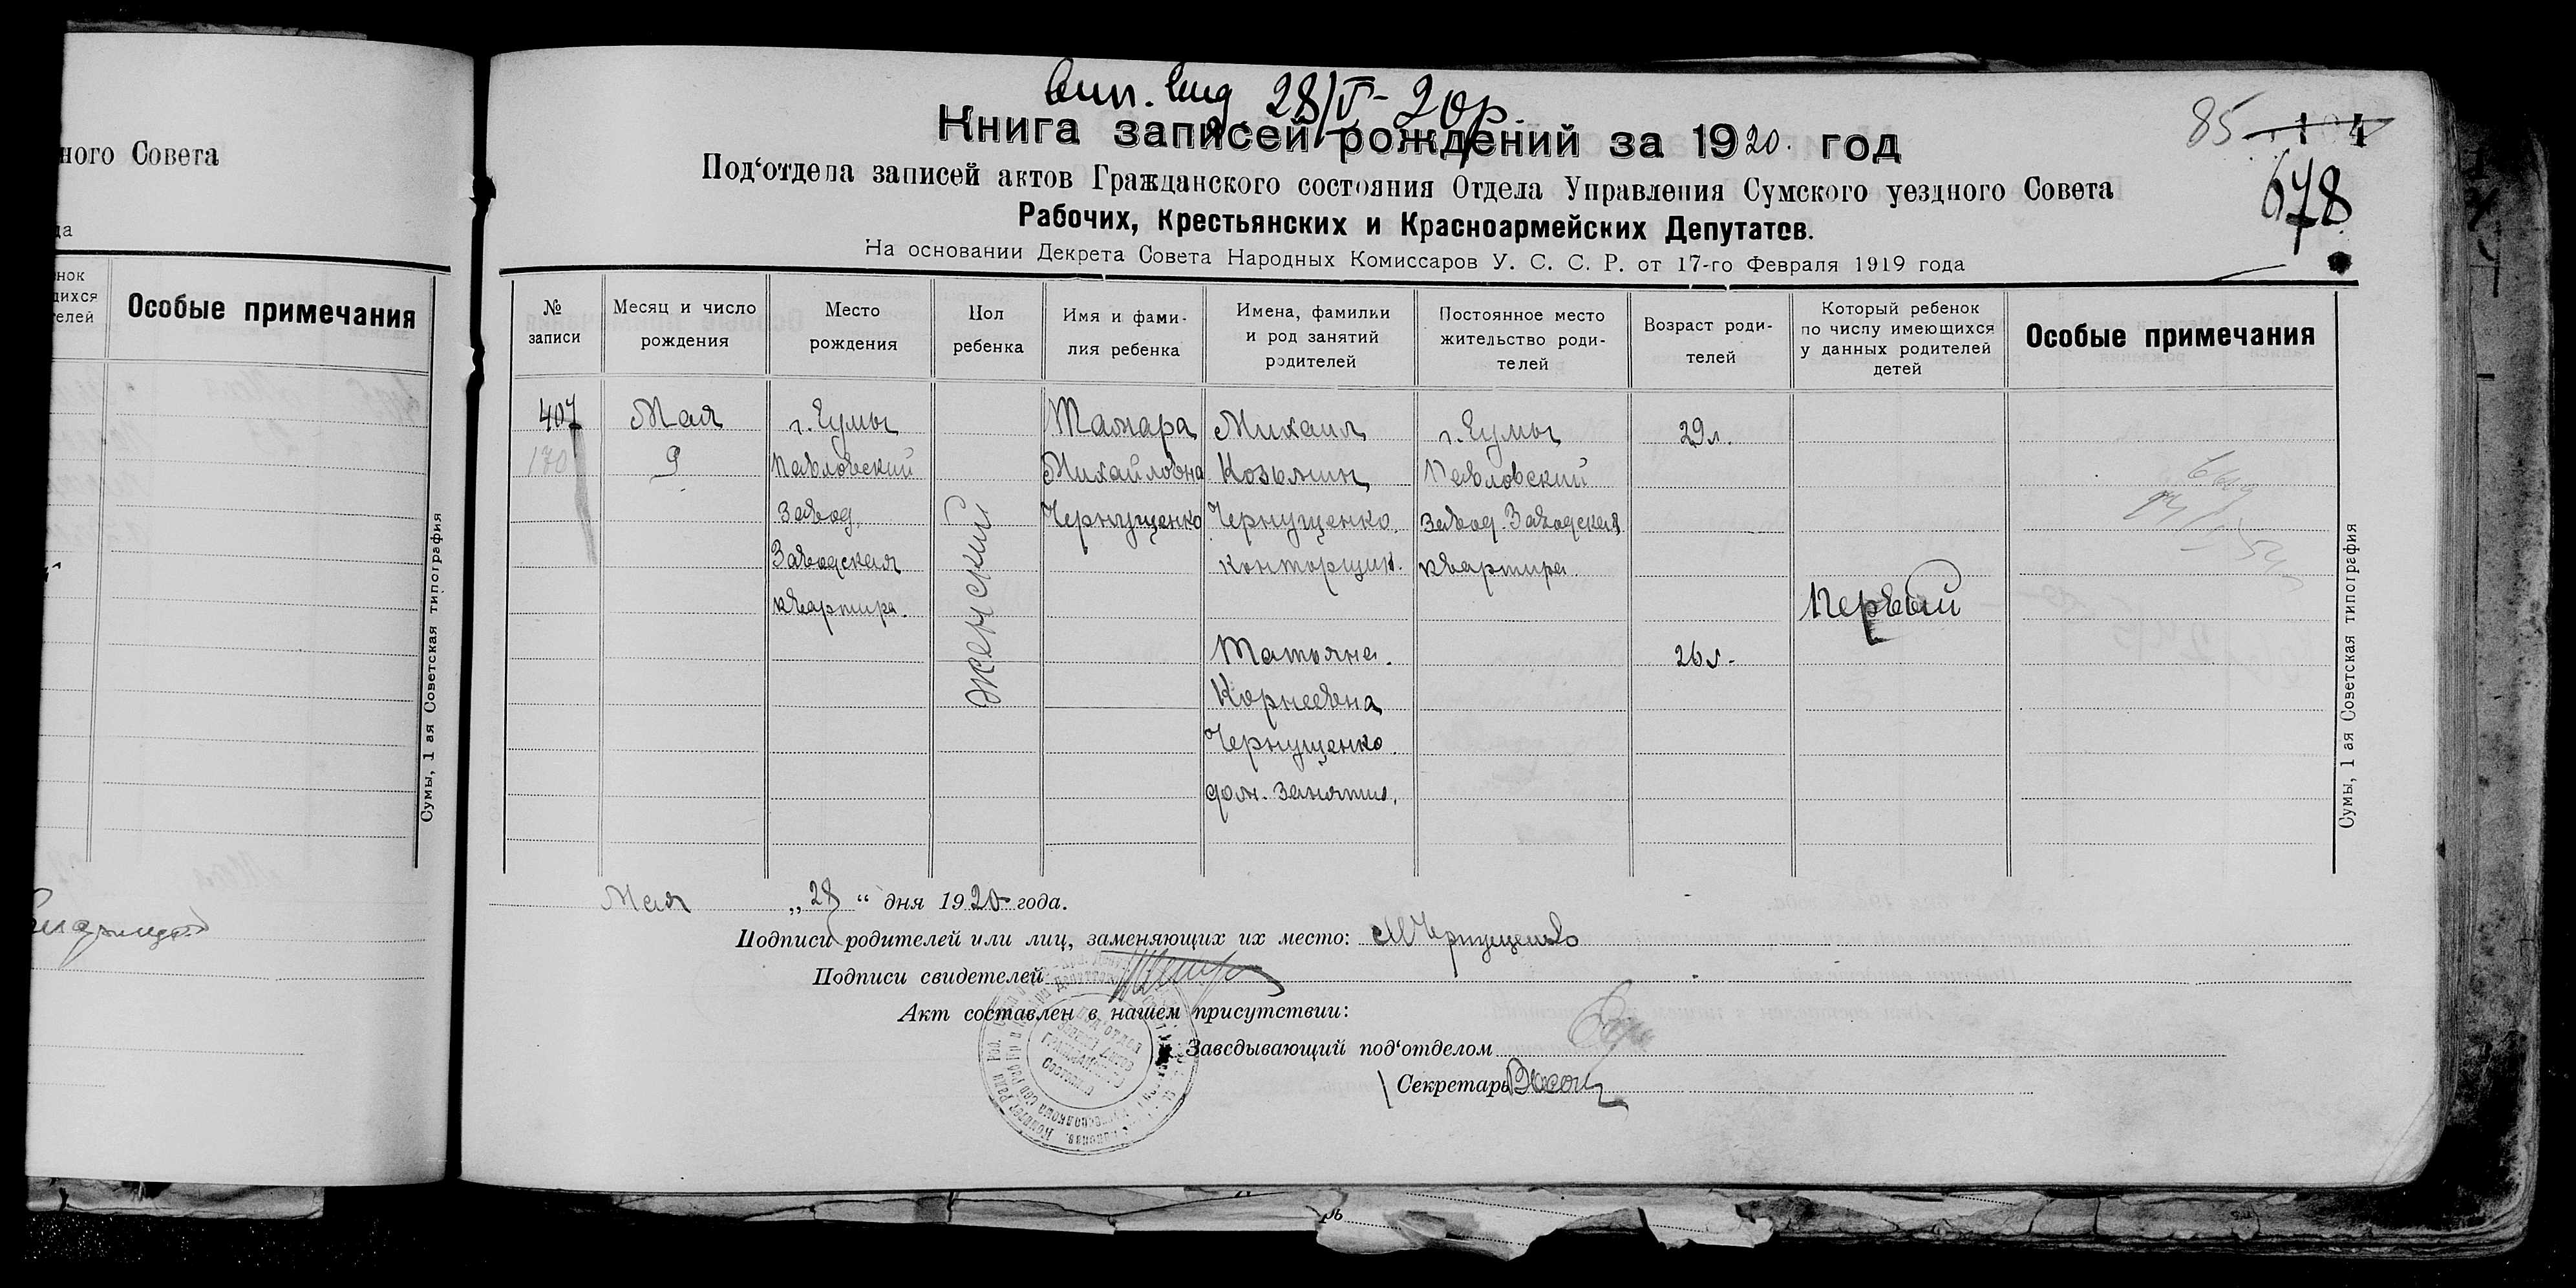 ного Совета
да
нок
щихся
телей
Особые примечания
Сумы, 1 ая Советская типография
вып. 28/V-20р.
85
678
Книга записей рождений за 1920. год
Под‘отдела записей актов Гражданского состояния Отдела Управления Сумского уездного Совета
Рабочих, Крестьянских и Красноармейских Депутатов.
На основании Декрета Совета Народных Комиссаров У. С. С. Р. от 17-го Февраля 1919 года
№ записи
Месяц и число рождения
Место рождения
Пол ребенка
Имя и фами-
лия ребенка
Имена, фамилии
и род занятий
родителей
Постоянное место
жительство роди-
телей
Возраст роди-
телей
Который ребенок
по числу имеющихся
у данных родителей
детей
Особые примечания
407
170
Мая
9
г. Сумы
Павловский
завод
Заводская
квартира.
женский
Тамара
Михайловна
Чернущенко
Михаил
Козьмин
Чернущенко.
конторщик.
Татьяна.
Корнеевна
Чернущенко.
дом. занятия.
г. Сумы
Павловский
завод. Заводская
квартира.
29л.
26л.
Первый
Сумы, 1 ая Советская типография
Мая „28“ дня 1920 года.
Подписи родителей или лиц, заменяющих их место: МЧернущенко
Подписи свидетелей
Акт составлен в нашем присутствии:
Заведывающий под‘отделом
Секретарь